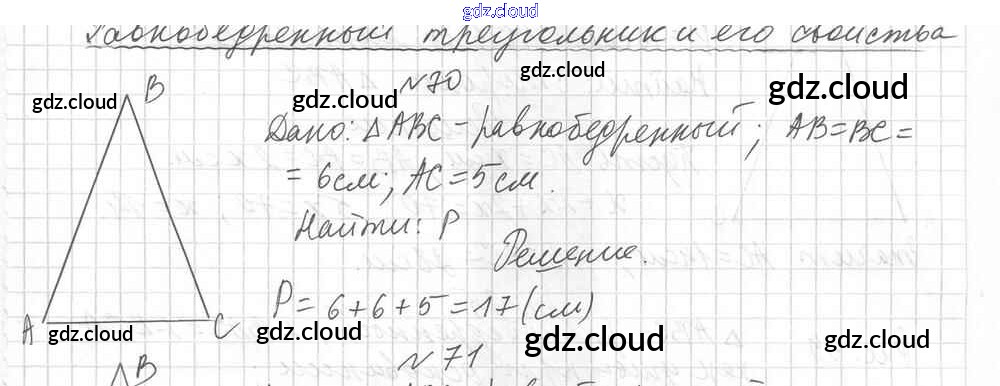 gdz.cloud
Равнобедренный треугольник и его свойства
gdz.cloud
№70
gdz.cloud
gdz.cloud
gdz.cloud
B
Дано: △ABC - равнобедренный; AB=BC=
= 6см; AC=5см.
Найти: P
Решение.
P= 6+6+5=17(см)
A
C
gdz.cloud
gdz.cloud
gdz.cloud
gdz.cloud
№71
B